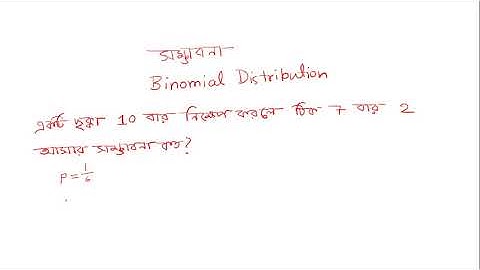 সম্ভাবনা
Binomial Distribution
একটি ছক্কা 10 বার নিক্ষেপ করলে ঠিক 7 বার 2
আসার সম্ভাবনা কত?
P = 1/6